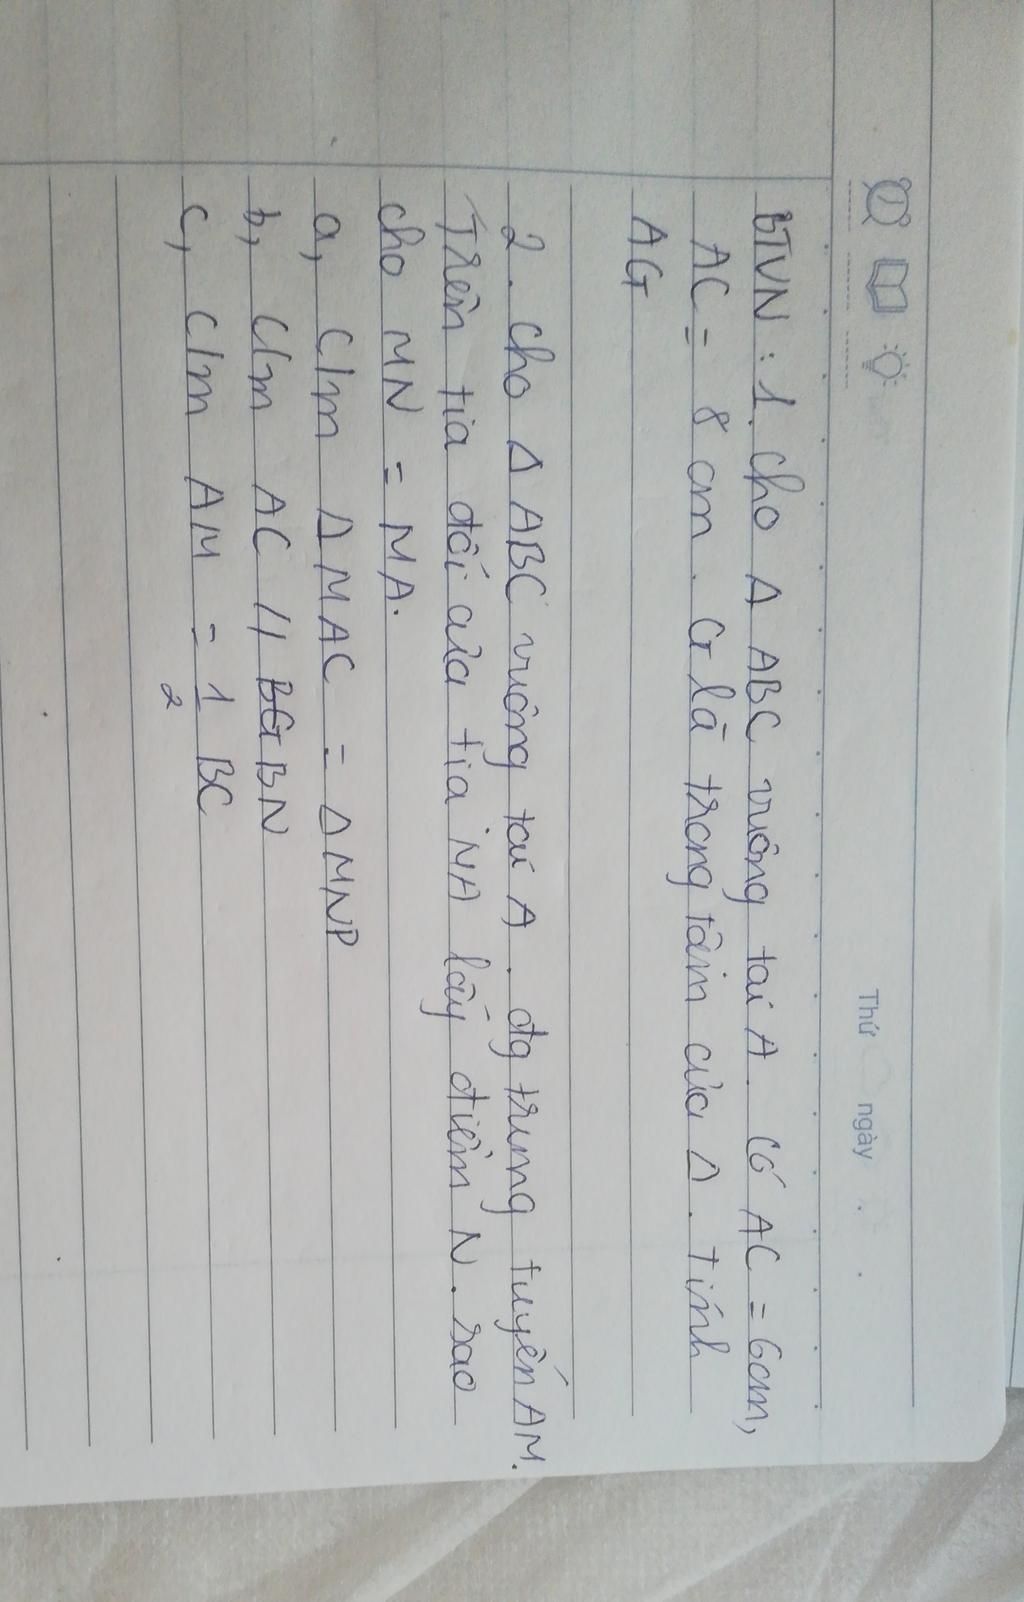 Thứ ngày
BTVN : 1. Cho Δ ABC vuông tại A. Có AC = 6cm,
AC = 8 cm. G là trọng tâm của Δ. Tính
AG
2. Cho Δ ABC vuông tại A. đg trung tuyến AM.
Trên tia đối của tia MA lấy điểm N. sao
cho MN = MA.
a, C/m Δ MAC = Δ MNP
b, C/m AC // BN
c, C/m AM = 1/2 BC